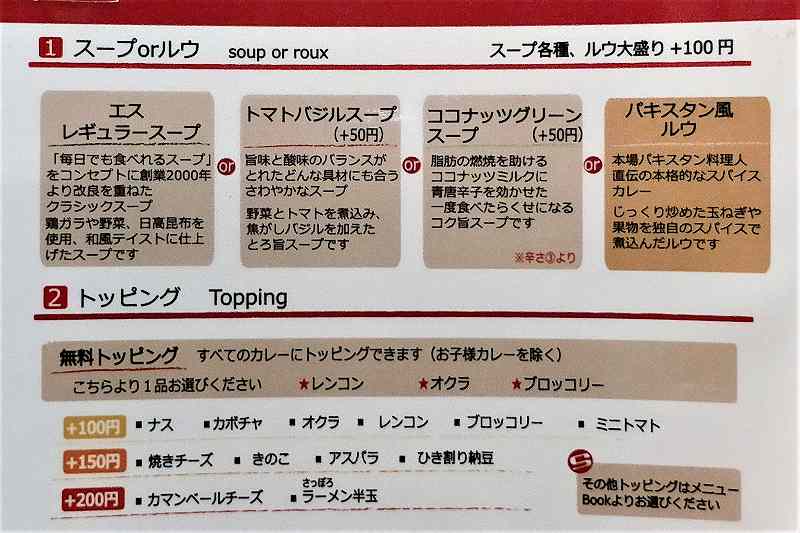 1 スープorルウ soup or roux スープ各種、ルウ大盛り +100 円
エス
レギュラースープ
「毎日でも食べれるスープ」
をコンセプトに創業2000年
より改良を重ねた
クラシックスープ
鶏ガラや野菜、日高昆布を
使用、和風テイストに仕上
げたスープです
or
トマトバジルスープ
(+50円)
旨味と酸味のバランスが
とれたどんな具材にも合う
さわやかなスープ
野菜とトマトを煮込み、
焦がしバジルを加えた
とろ旨スープです
or
ココナッツグリーン
スープ (+50円)
脂肪の燃焼を助ける
ココナッツミルクに
青唐辛子を効かせた
一度食べたらくせになる
コク旨スープです
※辛さ③より
or
パキスタン風
ルウ
本場パキスタン料理人
直伝の本格的なスパイス
カレー
じっくり炒めた玉ねぎや
果物を独自のスパイスで
煮込んだルウです
2 トッピング Topping
無料トッピング すべてのカレーにトッピングできます（お子様カレーを除く）
こちらより１品お選びください ★レンコン ★オクラ ★ブロッコリー
+100円 ▪ナス ▪カボチャ ▪オクラ ▪レンコン ▪ブロッコリー ▪ミニトマト
+150円 ▪焼きチーズ ▪きのこ ▪アスパラ ▪ひき割り納豆
さっぽろ
+200円 ▪カマンベールチーズ ▪ラーメン半玉
S
その他トッピングはメニュー
Bookよりお選びください